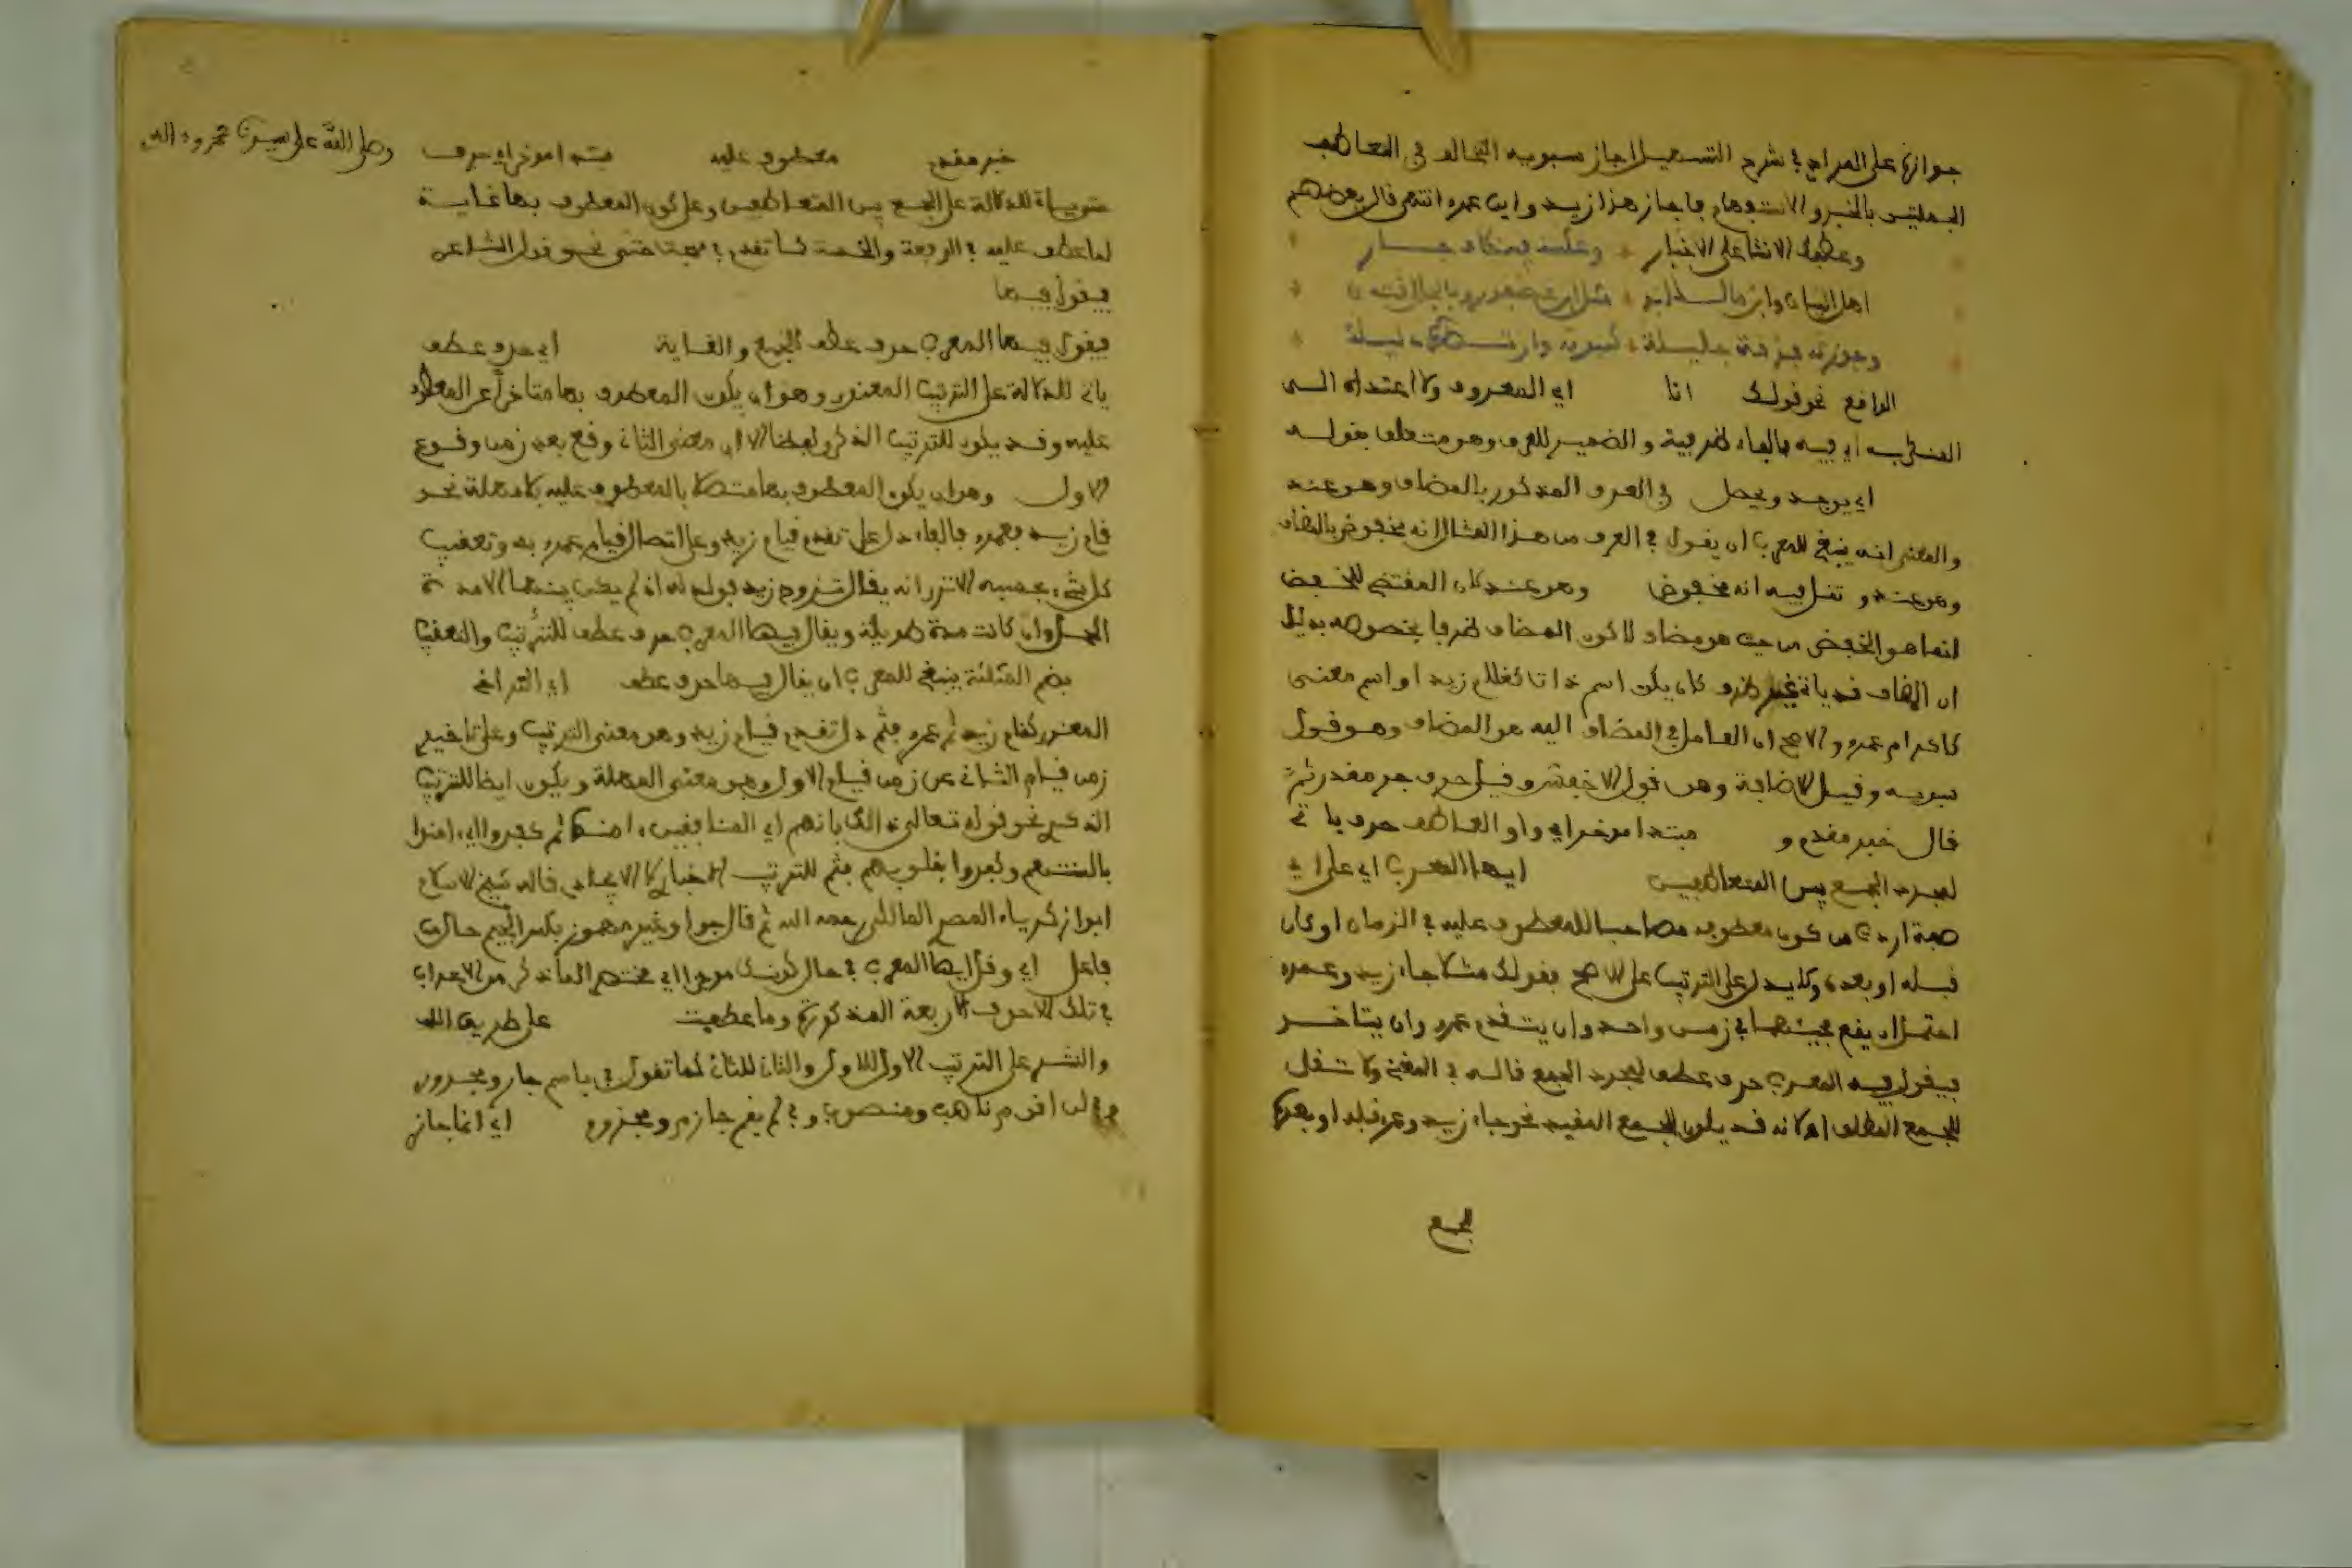 جوازها على المرادي في شرح التسهيل اجاز سيبويه التخالف في تعاطف
الجملتين بالخبر والاستفهام فاجاز هذا زيد واين عمرو انتهى قال بعضهم
وعطفك الانشا على الاخبار وعكسه
اهل البيان وابن مالك
وجوزته فرقة جليلة
الواقع نحو قولك انا اي المعروف ولا اعتداد الى
اي فيه فالباء ظرفية والضمير للظرف وهو متعلق بقوله
اي يوجد ويحصل في الظرف المذكور بالمضاف وهو عند
والمعنى انه ينبغي للمعرب ان يقول في الظرف من هذا المثال انه مخفوض بالمضاف
وهو عند و تقل فيه انه مخفوض وهو عند لان المقتضي للخفض
انما هو الخفض من حيث هو مضاف لا كون المضاف ظرفا بخصوصه بدليل
ان المضاف قد ياتي غير ظرف كان يكون اسم ذات كغلام زيد او اسم معنى
كاكرام عمرو والاصح ان العامل في المضاف اليه هو المضاف وهو قول
سيبويه وقيل الاضافة وهو قول الاخفش وقيل حرف جر مقدر ثم
قال خبر مقدم و مبتدا موخر اي واو العاطف حرف ياتي
لمجرد الجمع بين المتعاطفين ايها المعرب اي على اي
صفة اردت من كون معطوفه مصاحبا للمعطوف عليه في الزمان او كان
قبله او بعده ولا يدل على الترتيب على الاصح بقولك مثلا جاء زيد وعمرو
احتمل ان يقع مجيئهما في زمن واحد وان يتقدم عمرو وان يتاخر
فيقول فيه المعرب حرف عطف لمجرد الجمع قاله في المغني ولا تقل
للجمع المطلق لانه قد يكون للجمع المقيد نحو جاء زيد وعمرو قبله او بعده
للجمع
وصلى الله على سيدنا محمد وءاله
خبر مقدم معطوف عليه مبتدا موخر اي حرف
للدلالة على الجمع بين المتعاطفين وعلى كون المعطوف بها غاية
لما عطف عليه في الرفعة والخسة كما تقدم في مبحث حتى نحو قول الشاعر
فيقول فيها
فيقول فيها المعرب حرف عطف للجمع والغاية اي حرف عطف
ياتي للدلالة على الترتيب المعنوي وهو ان يكون المعطوف بها متاخرا عن المعطوف
عليه وقد يكون للترتيب الذكري لفظا لا ان معنى الثاني وقع بعد زمن وقوع
الاول وهو ان يكون المعطوف بها متصلا بالمعطوف عليه بلا مهلة نحو
قام زيد فعمرو فالفاء دل على تقدم قيام زيد وعلى اتصال قيام عمرو به وتعقيب
كل شيء بحسبه الا ترى انه يقال تزوج زيد فولد له اذا لم يكن بينهما الا مدة
الحمل وان كانت مدة طويلة ويقال فيها المعرب حرف عطف للترتيب والتعقيب
بضم المثلثة ينبغي للمعرب ان يقال فيها حرف عطف اي التراخي
المعنوي كقام زيد ثم عمرو فثم دل تقدم قيام زيد وهو معنى الترتيب وعلى تاخير
زمن قيام الثاني عن زمن قيام الاول وهو معنى المهلة ويكون ايضا للترتيب
الذكري نحو قوله تعالى ذلك بانهم اي المنافقين ءامنوا ثم كفروا اي امنوا
بالسنتهم وكفروا بقلوبهم فثم للترتيب الاخباري لا الايجادي قاله شيخ الاسلام
ابو ازكرياء المصري المالكي رحمه الله ثم قال جوا وغير مهموز بكسر الجيم حال من
فاعل اي وقل ايها المعرب في حال كونك موجزا اي مختصرا لما ذكر من الاعراب
في تلك الاحرف الاربعة المذكورة وما عطفت على طريق اللف
والنشر على الترتيب الاول للاول والثاني للثاني كما تقول في باسم جار ومجرور
وفي لن اقوم ناصب ومنصوب وفي لم يقم جازم ومجزوم اي انما جاز